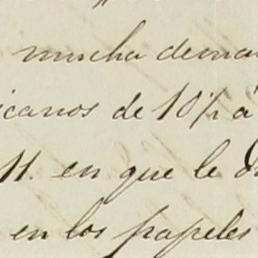 mucha deman
icanos de 10% á
11. en que le di
en los papeles